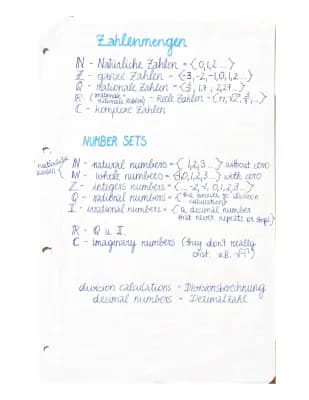 Zahlenmengen
N - Natürliche Zahlen = {0,1,2...}
Z - ganze Zahlen - {-3,-2,-1,0,1,2...}
Q - rationale Zahlen =
R - Reele Zahlen -
C - komplexe Zahlen
NUMBER SETS
N - natural numbers = { 1,2,3... } without zero
W - whole numbers = {0,1,2,3...} with zero
Z - integers numbers = {... -2,-1, 0,1,2,3...}
Q - rational numbers = {the answer to division
calculation}
I - irrational numbers = {a decimal number
that never repeats or stops}
R - Q u I
C - imaginary numbers (they don't really
exist. z.B. √-1)
division calculations - Divisionsberechnung
decimal numbers = Dezimalzahl